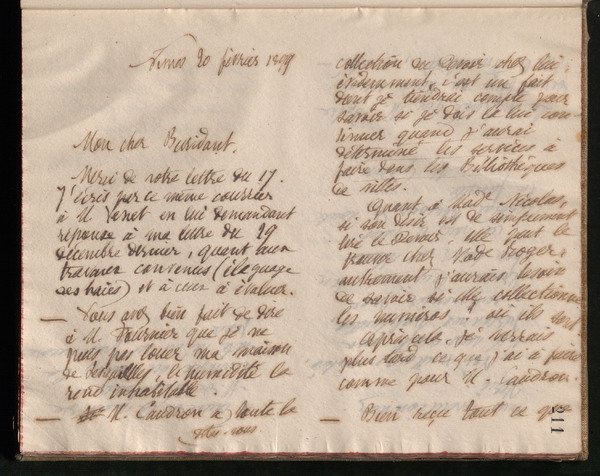 Nimes 20 février 1899
Mon cher Buridant,
Merci de votre lettre du 17.
J'écris par ce même courrier
à M. Venet en lui demandant
réponse à ma lettre du 29
décembre dernier, quant aux
travaux convenus (élaguage
des haies) et à ceux à évaluer.
— Vous avez bien fait de dire
à M. Fournier que je ne
puis pas louer ma maison
de, l'humidité la
rend inhabitable.
— M. Caudron a toute la
dites-vous.
collection du Devoir chez lui,
évidemment, c'est un fait
dont je tiendrai compte pour
savoir si je dois la lui con-
tinuer quand j'aurai
déterminé les services à
faire dans les Bibliothèques
de villes.
Quant à Made Nicolas,
si son désir est de simplement
lire le Devoir, elle peut le
trouver chez Made Roger,
autrement j'aurais besoin
de savoir si elle collectionne
les numéros; où ils sont.
Après cela, je verrais
plus tard ce que j'ai à faire
comme pour M. Caudron.
— Bien reçu tout ce que
211